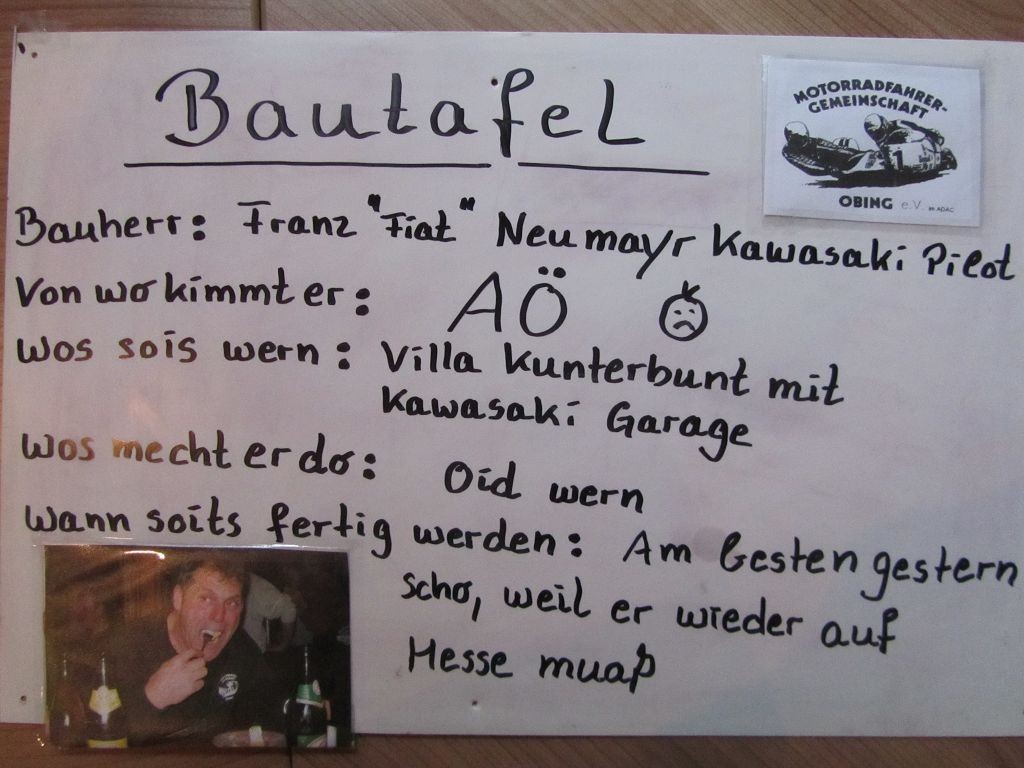 Bautafel
MOTORRADFAHRER-
GEMEINSCHAFT
OBING e.V. im ADAC
Bauherr: Franz "Fiat" Neumayr Kawasaki Pilot
Von wo kimmt er: AÖ
Wos sois wern: Villa Kunterbunt mit
Kawasaki Garage
Wos mecht er do: Oid wern
Wann soits fertig werden: Am besten gestern
scho, weil er wieder auf
Messe muaß